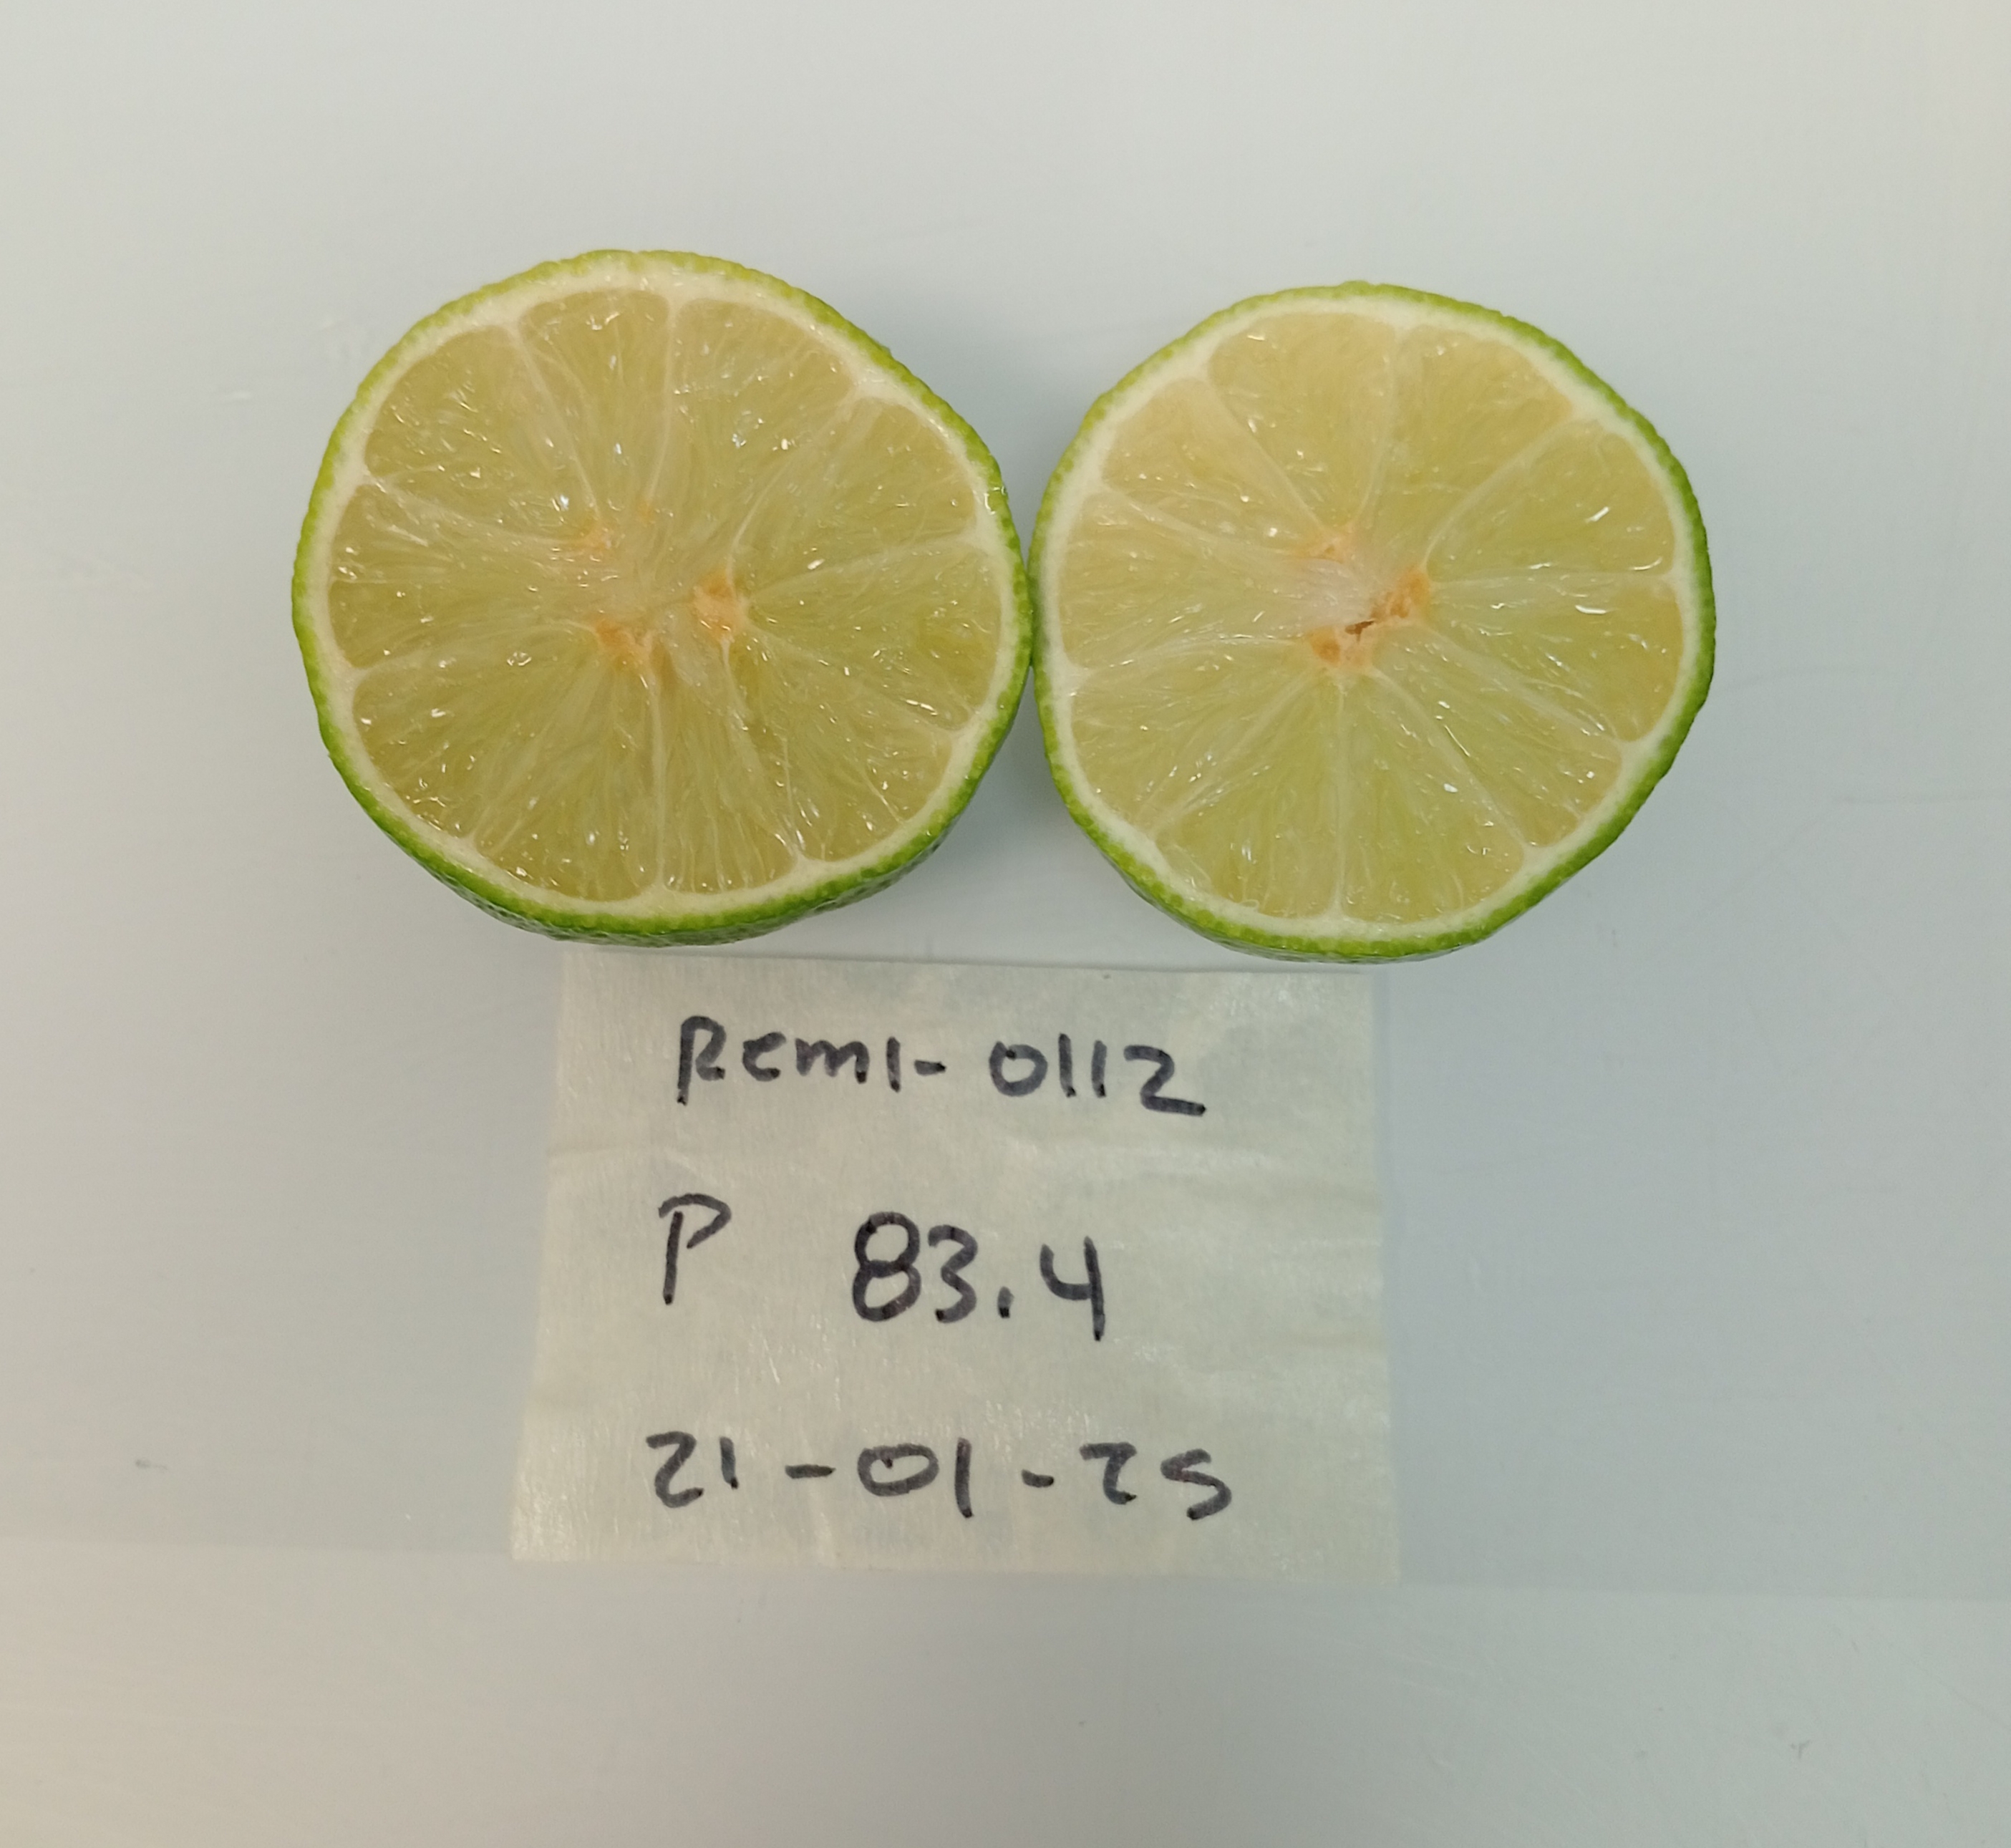 Remi-0112
P 83.4
21-01-25